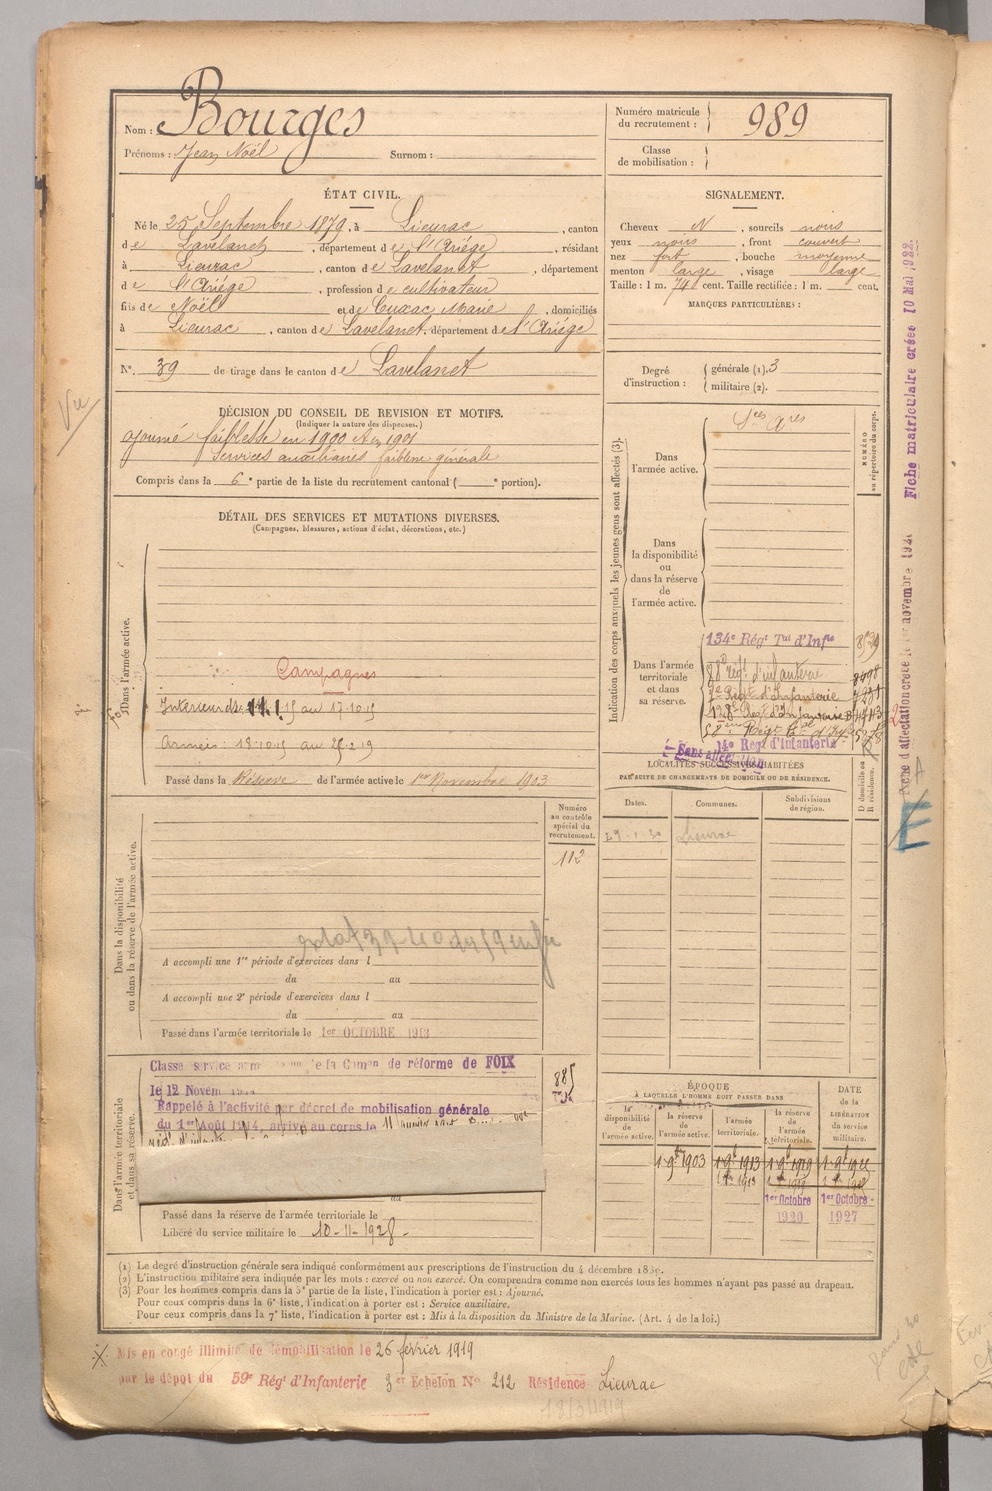 Nom : Bourges
Prénoms : Jean Noël Surnom :
Numéro matricule du recrutement : 989
Classe de mobilisation :
ÉTAT CIVIL.
Né le 25 Septembre 1879, à Lieurac, canton
de Lavelanet, département de l'Ariége, résidant
à Lieurac, canton de Lavelanet, département
de l'Ariége, profession de cultivateur
fils de Noël et de Cuxac Marie, domiciliés
à Lieurac, canton de Lavelanet, département de l'Ariége
N° 39 de tirage dans le canton de Lavelanet
SIGNALEMENT.
Cheveux N, sourcils noirs
yeux noirs, front couvert
nez fort, bouche moyenne
menton large, visage large
Taille : 1 m. 74 cent. Taille rectifiée : 1 m. cent.
MARQUES PARTICULIÈRES :
Degré d'instruction : générale (1). 3
militaire (2).
Vu
DÉCISION DU CONSEIL DE REVISION ET MOTIFS.
(Indiquer la nature des dispenses.)
ajourné faiblesse en 1900 et en 1901
Services auxiliaires faiblesse générale
Compris dans la 6e partie de la liste du recrutement cantonal ( e portion).
DÉTAIL DES SERVICES ET MUTATIONS DIVERSES.
(Campagnes, blessures, actions d'éclat, décorations, etc.)
Dans l'armée active.
Campagnes
Intérieur du 11.1.15 au 17.10.15
Armées : 18.10.15 au 25.2.19
Passé dans la Réserve de l'armée active le 1er Novembre 1903
Indication des corps auxquels les jeunes gens sont affectés (3).
NUMÉRO au répertoire du corps.
Dans l'armée active.
Dans la disponibilité ou dans la réserve de l'armée active.
Dans l'armée territoriale et dans sa réserve.
134e Régt Tal d'Infie
88e Régt d'infanterie
14e Reg d'Infanterie
Sans affectation
Fiche matriculaire créée 10 Mai 1922.
LOCALITÉS SUCCESSIVES HABITÉES
PAR SUITE DE CHANGEMENTS DE DOMICILE OU DE RÉSIDENCE.
Dates. Communes. Subdivisions de région. D domicile ou R résidence.
Lieurac
E
Numéro au contrôle spécial du recrutement.
112
Dans la disponibilité ou dans la réserve de l'armée active.
A accompli une 1re période d'exercices dans l
du au
A accompli une 2e période d'exercices dans l
du au
Passé dans l'armée territoriale le 1er OCTOBRE 1913
Dans l'armée territoriale et dans sa réserve.
de réforme de FOIX
le 12 Novem
Rappelé à l'activité par décret de mobilisation générale
du 1er Août 1914, arrivé au corps le
885
au
Passé dans la réserve de l'armée territoriale le
Libéré du service militaire le 10-11-1928.
ÉPOQUE
À LAQUELLE L'HOMME DOIT PASSER DANS
la disponibilité de l'armée active. la réserve de l'armée active. l'armée territoriale. la réserve de l'armée territoriale.
DATE de la LIBÉRATION du service militaire.
1er Octobre 1920
1er Octobre 1927
(1) Le degré d'instruction générale sera indiqué conformément aux prescriptions de l'instruction du 4 décembre 1889.
(2) L'instruction militaire sera indiquée par les mots : exercé ou non exercé. On comprendra comme non exercés tous les hommes n'ayant pas passé au drapeau.
(3) Pour les hommes compris dans la 5e partie de la liste, l'indication à porter est : Ajourné.
Pour ceux compris dans la 6e liste, l'indication à porter est : Service auxiliaire.
Pour ceux compris dans la 7e liste, l'indication à porter est : Mis à la disposition du Ministre de la Marine. (Art. 4 de la loi.)
Mis en congé illimité de démobilisation le 26 février 1919
par le dépot du 59e Régt d'Infanterie 3er Echelon No 212 Résidence Lieurac